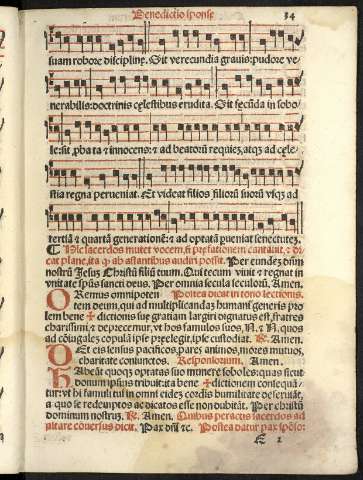 Benedictio sponse 34
suam robore discipline. Sit verecundia grauis: pudore ve
nerabilis: doctrinis celestibus erudita. Sit fecūda in sobo
le: sit ꝓbata ⁊ innocens: ⁊ ad beatorū requiez, atqꝫ ad cele
stia regna perueniat. Et videat filios filiorū suorū vsqꝫ ad
tertiā ⁊ quartā generationē: ⁊ ad optatā ꝑueniat senectutez.
Hic sacerdos mutet vocem, si prefationem cantauit, ⁊ di
cat plane, ita ꝙ ab astantibus audiri possit. Per eundez dn̄m
nostrū Jesuz Christū filiū tuum. Qui tecum viuit ⁊ regnat in
vnitate spūs sancti deus. Per omnia secula seculorū. Amen.
Oremus omnipoten Postea dicat in tono lectionis.
tem deum, qui ad multiplicandaz humani generis pro
lem bene ✠ dictionis sue gratiam largiri dignatus est, fratres
charissimi ⁊ deprecemur, vt hos famulos suos, N. ⁊ N. quos
ad cōiugalez copulā ipse preelegit, ipse custodiat. ℟. Amen.
Det eis sensus pacificos, pares animos, mores mutuos,
charitate coniunctos. Responsorium. Amen.
Habeāt quoqꝫ optatas suo munere soboles: quas sicut
donum ipsius tribuit: ita bene ✠ dictionem consequā
tur: vt hi famuli tui in omni eidez cordis humilitate deseruiāt,
a quo se redemptos ac dicatos esse non dubitāt. Per christū
dominum nostruz. ℟. Amen. Quibus peractis sacerdos ad
altare cōuersus dicit. Pax dn̄i ⁊c. Postea datur pax spōso:
E 2